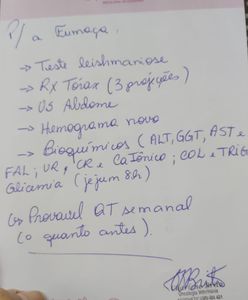 P/ a Fumaça,
→ Teste leishmaniose
→ Rx Tórax (3 projeções)
→ US Abdome
→ Hemograma novo
→ Bioquímicos (ALT, GGT, AST e
FAL; UR, CR e Ca Iônico; COL e TRIG
Glicemia (jejum 8h)
Provavel QT semanal
(o quanto antes).